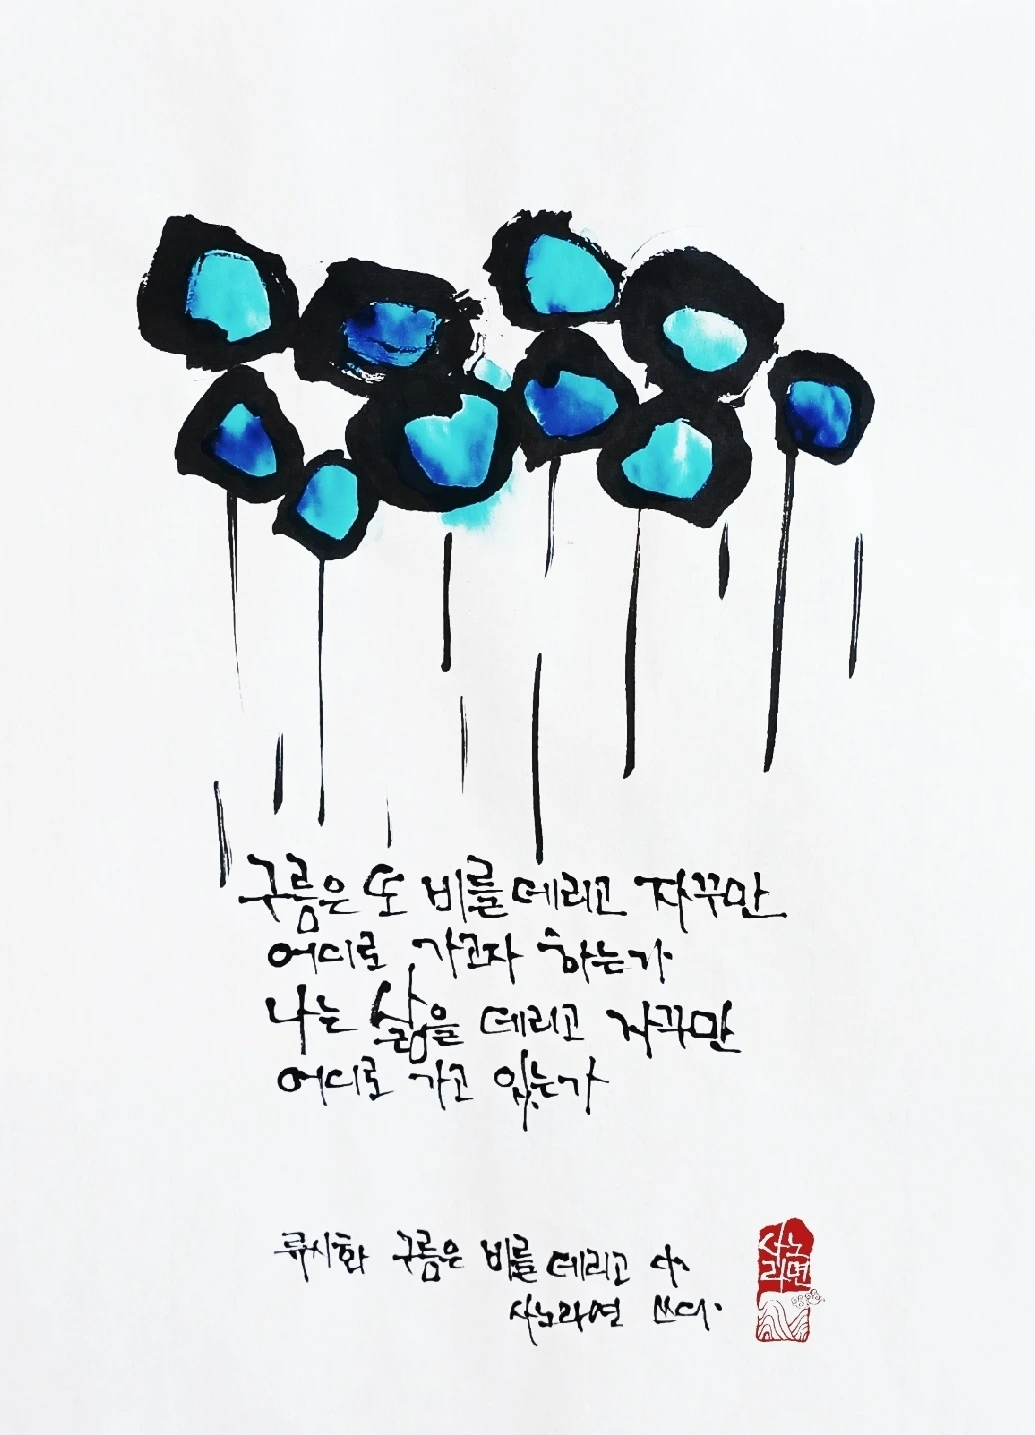 구름은 또 비를 데리고 자꾸만
어디로 가고자 하는가
나는 삶을 데리고 자꾸만
어디로 가고 있는가
류시화 구름은 비를 데리고 中
사노라면 쓰다.
사노
라면